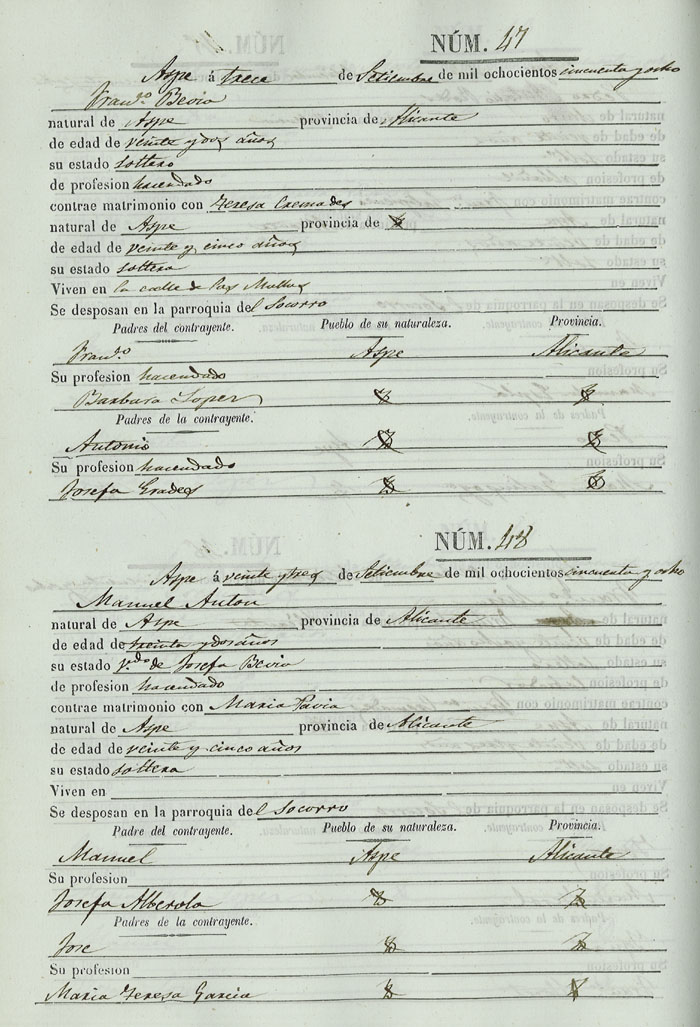 NÚM. 47
Aspe á trece de Setiembre de mil ochocientos cincuenta y ocho
Fran.co Bevia
natural de Aspe provincia de Alicante
de edad de veinte y dos años
su estado soltero
de profesion hacendado
contrae matrimonio con Teresa Cremades
natural de Aspe provincia de
de edad de veinte y cinco años
su estado soltera
Viven en la calle de las
Se desposan en la parroquia del Socorro
Padres del contrayente. Pueblo de su naturaleza. Provincia.
Fran.co Aspe Alicante
Su profesion hacendado
Barbara Loper
Padres de la contrayente.
Antonio
Su profesion hacendado
Josefa Grades
NÚM. 48
Aspe á veinte y tres de Setiembre de mil ochocientos cincuenta y ocho
Manuel Anton
natural de Aspe provincia de Alicante
de edad de treinta y dos años
su estado v.do de Josefa Bevia
de profesion hacendado
contrae matrimonio con Maria Pavia
natural de Aspe provincia de Alicante
de edad de veinte y cinco años
su estado soltera
Viven en
Se desposan en la parroquia del Socorro
Padre del contrayente. Pueblo de su naturaleza. Provincia.
Manuel Aspe Alicante
Su profesion
Josefa Alberola
Padres de la contrayente.
Jose
Su profesion
Maria Teresa Garcia